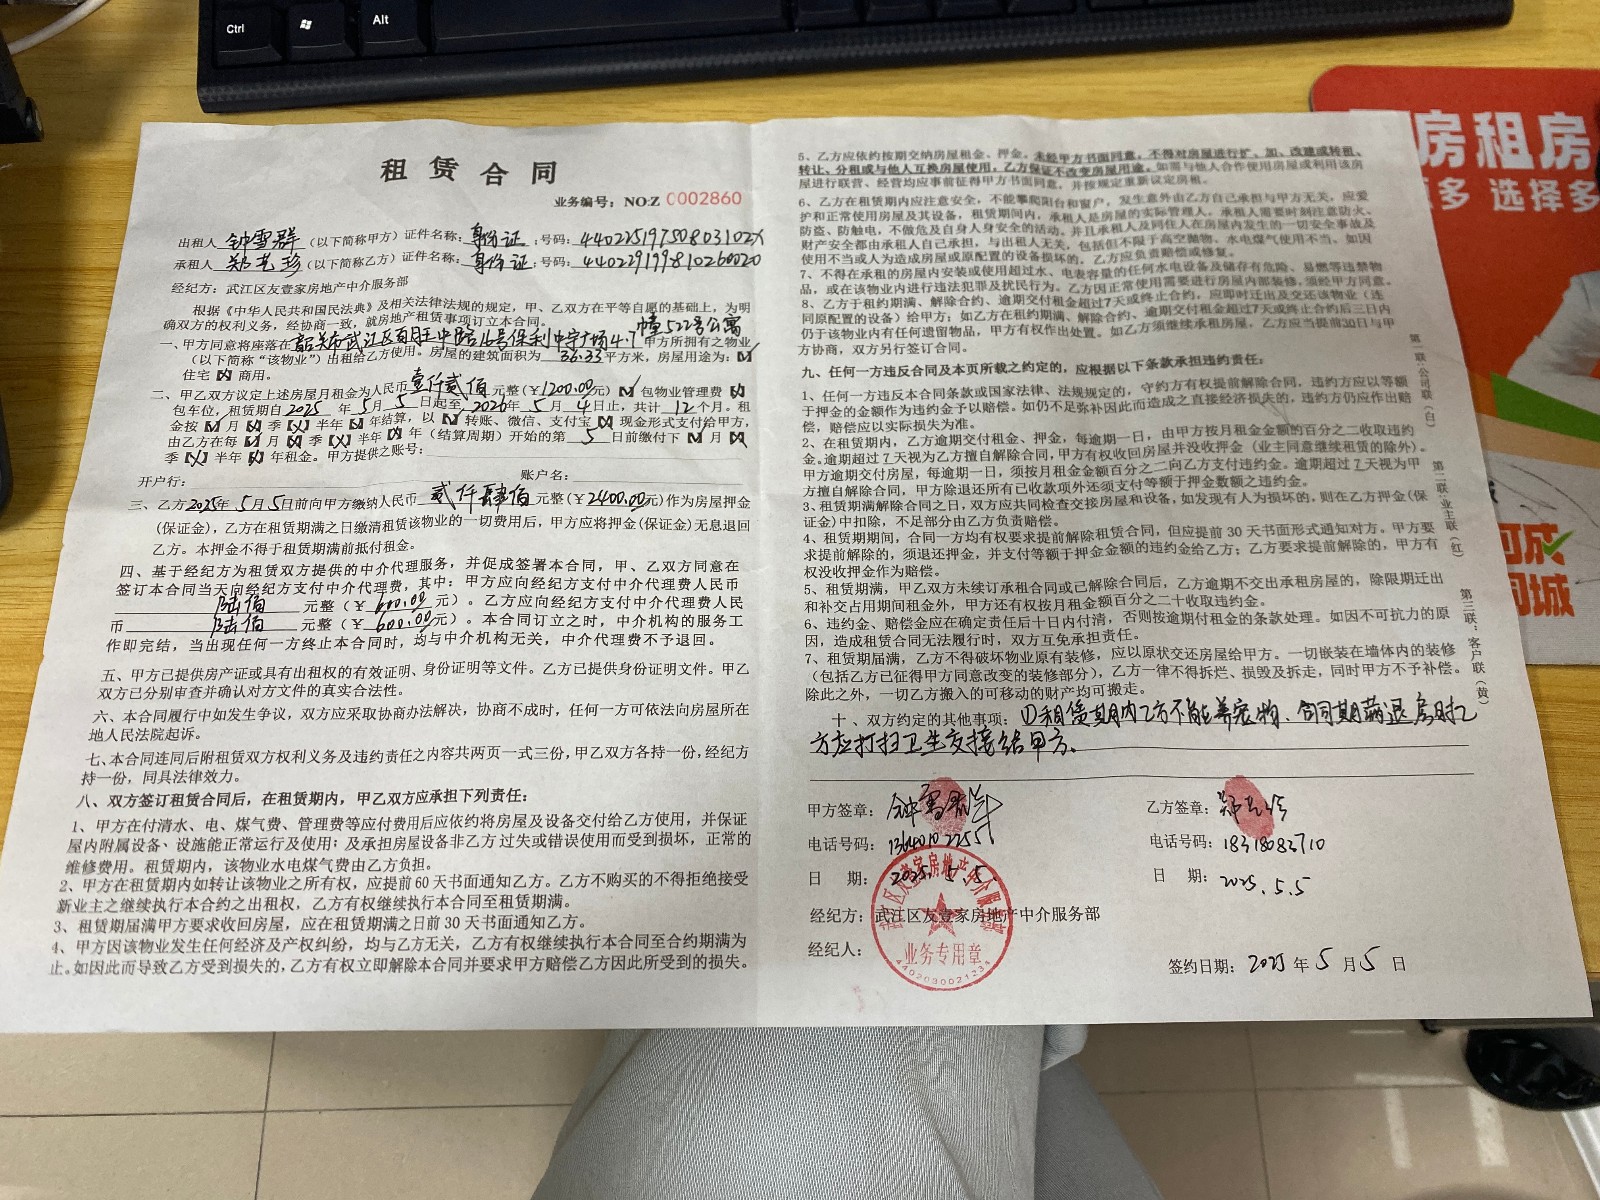 Ctrl
Alt
租赁合同
业务编号：NO:Z 0002860
出租人 钟雪群 （以下简称甲方）证件名称：身份证；号码：44022519750803102X
承租人 郑艺珍 （以下简称乙方）证件名称：身份证；号码：440229199810260020
经纪方：武江区友壹家房地产中介服务部
根据《中华人民共和国民法典》及相关法律法规的规定，甲、乙双方在平等自愿的基础上，为明
确双方的权利义务，经协商一致，就房地产租赁事项订立本合同。
一、甲方同意将座落在韶关市武江区百旺中路16号保利中宇广场4.7幢522号公寓甲方所拥有之物业
（以下简称“该物业”）出租给乙方使用。房屋的建筑面积为 36.33 平方米，房屋用途为：
住宅 商用。
二、甲乙双方议定上述房屋月租金为人民币壹仟贰佰元整（￥1200.00元） 包物业管理费
包车位，租赁期自2025年5月5日起至2026年5月4日止，共计12个月。租
金按 月 季 半年 年结算，以 转账、微信、支付宝 现金形式支付给甲方，
由乙方在每 月 季 半年 年（结算周期）开始的第 5 日前缴付下 月
季 半年 年租金。甲方提供之账号：
开户行： 账户名：
三、乙方2025年5月5日前向甲方缴纳人民币 贰仟肆佰 元整（￥2400.00元）作为房屋押金
（保证金），乙方在租赁期满之日缴清租赁该物业的一切费用后，甲方应将押金（保证金）无息退回
乙方。本押金不得于租赁期满前抵付租金。
四、基于经纪方为租赁双方提供的中介代理服务，并促成签署本合同，甲、乙双方同意在
签订本合同当天向经纪方支付中介代理费，其中：甲方应向经纪方支付中介代理费人民币
陆佰 元整（￥600.00元）。乙方应向经纪方支付中介代理费人民
币 陆佰 元整（￥600.00元）。本合同订立之时，中介机构的服务工
作即完结，当出现任何一方终止本合同时，均与中介机构无关，中介代理费不予退回。
五、甲方已提供房产证或具有出租权的有效证明、身份证明等文件。乙方已提供身份证明文件。甲乙
双方已分别审查并确认对方文件的真实合法性。
六、本合同履行中如发生争议，双方应采取协商办法解决，协商不成时，任何一方可依法向房屋所在
地人民法院起诉。
七、本合同连同后附租赁双方权利义务及违约责任之内容共两页一式三份，甲乙双方各持一份，经纪方
持一份，同具法律效力。
八、双方签订租赁合同后，在租赁期内，甲乙双方应承担下列责任：
1、甲方在付清水、电、煤气费、管理费等应付费用后应依约将房屋及设备交付给乙方使用，并保证
屋内附属设备、设施能正常运行及使用；及承担房屋设备非乙方过失或错误使用而受到损坏，正常的
维修费用。租赁期内，该物业水电煤气费由乙方负担。
2、甲方在租赁期内如转让该物业之所有权，应提前60天书面通知乙方。乙方不购买的不得拒绝接受
新业主之继续执行本合约之出租权，乙方有权继续执行本合同至租赁期满。
3、租赁期届满甲方要求收回房屋，应在租赁期满之日前30天书面通知乙方。
4、甲方因该物业发生任何经济及产权纠纷，均与乙方无关，乙方有权继续执行本合同至合约期满为
止。如因此而导致乙方受到损失的，乙方有权立即解除本合同并要求甲方赔偿乙方因此所受到的损失。
5、乙方应依约按期交纳房屋租金、押金，未经甲方书面同意，不得对房屋进行扩、加、改建或转租、
转让、分租或与他人互换房屋使用，乙方保证不改变房屋用途。如需与他人合作使用房屋或利用该房
屋进行联营、经营均应事前征得甲方书面同意，并按规定重新议定房租。
6、乙方在租赁期内应注意安全，不能攀爬阳台和窗户，发生意外由乙方自己承担与甲方无关，应爱
护和正常使用房屋及其设备，租赁期间内，承租人是房屋的实际管理人。承租人需要时刻注意防火、
防盗、防触电，不做危及自身人身安全的活动。并且承租人及同住人在房屋内发生的一切安全事故及
财产安全都由承租人自己承担，与出租人无关，包括但不限于高空抛物、水电煤气使用不当、如因
使用不当或人为造成房屋或原配置的设备损坏的，乙方应负责赔偿或修复。
7、不得在承租的房屋内安装或使用超过水、电表容量的任何水电设备及储存有危险、易燃等违禁物
品，或在该物业内进行违法犯罪及扰民行为。乙方因正常使用需要进行房屋内部装修，须经甲方同意。
8、乙方于租约期满、解除合约、逾期交付租金超过7天或终止合约，应即时迁出及交还该物业（连
同原配置的设备）给甲方；如乙方在租约期满、解除合约、逾期交付租金超过7天或终止合约后三日内
仍于该物业内有任何遗留物品，甲方有权作出处置。如乙方须继续承租房屋，乙方应当提前30日与甲
方协商，双方另行签订合同。
九、任何一方违反合同及本页所载之约定的，应根据以下条款承担违约责任：
1、任何一方违反本合同条款或国家法律、法规规定的，守约方有权提前解除合同，违约方应以等额
于押金的金额作为违约金予以赔偿。如仍不足弥补因此而造成之直接经济损失的，违约方仍应作出赔
偿，赔偿应以实际损失为准。
2、在租赁期内，乙方逾期交付租金、押金，每逾期一日，由甲方按月租金金额的百分之二收取违约
金。逾期超过7天视为乙方擅自解除合同，甲方有权收回房屋并没收押金（业主同意继续租赁的除外）。
甲方逾期交付房屋，每逾期一日，须按月租金金额百分之二向乙方支付违约金。逾期超过7天视为甲
方擅自解除合同，甲方除退还所有已收款项外还须支付等额于押金数额之违约金。
3、租赁期满解除合同之日，双方应共同检查交接房屋和设备，如发现有人为损坏的，则在乙方押金（保
证金）中扣除，不足部分由乙方负责赔偿。
4、租赁期期间，合同一方均有权要求提前解除租赁合同，但应提前30天书面形式通知对方。甲方要
求提前解除的，须退还押金，并支付等额于押金金额的违约金给乙方；乙方要求提前解除的，甲方有
权没收押金作为赔偿。
5、租赁期满，甲乙双方未续订承租合同或已解除合同后，乙方逾期不交出承租房屋的，除限期迁出
和补交占用期间租金外，甲方还有权按月租金额百分之二十收取违约金。
6、违约金、赔偿金应在确定责任后十日内付清，否则按逾期付租金的条款处理。如因不可抗力的原
因，造成租赁合同无法履行时，双方互免承担责任。
7、租赁期届满，乙方不得破坏物业原有装修，应以原状交还房屋给甲方。一切嵌装在墙体内的装修
（包括乙方已征得甲方同意改变的装修部分），乙方一律不得拆烂、损毁及拆走，同时甲方不予补偿。
除此之外，一切乙方搬入的可移动的财产均可搬走。
十、双方约定的其他事项：①租赁期内乙方不能养宠物、合同期满退房时乙
方应打扫卫生交接给甲方。
甲方签章：钟雪群
乙方签章：郑艺珍
电话号码：13640102255
电话号码：18318083710
日 期：2025.5.5.
日 期：2025.5.5
经纪方：武江区友壹家房地产中介服务部
经纪人：
业务专用章
4402030021234
签约日期：2025年5月5日
第一联：公司联（白）
第二联：业主联（红）
第三联：客户联（黄）
房租房
多 选择多
同城